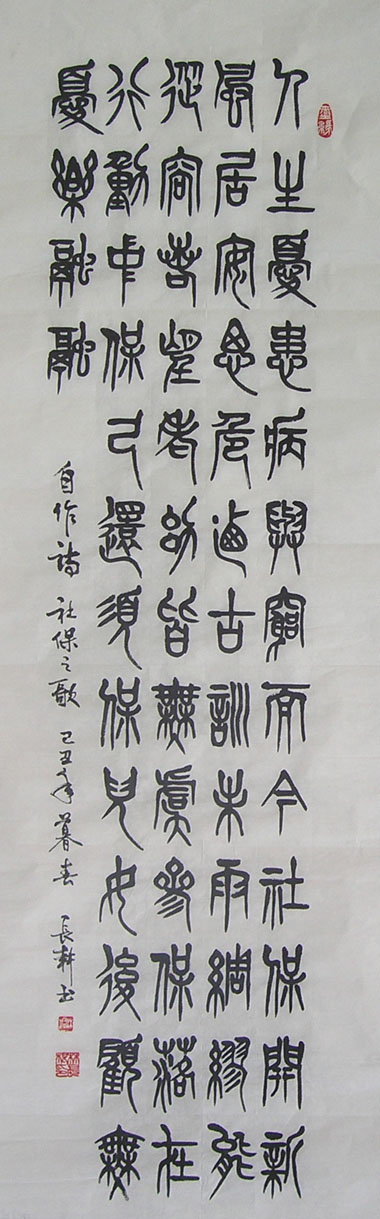 人生憂患病與窮而今社保開新
風居安思危古訓未雨綢繆能
從容望老幼皆無虞參保落在
行動中保己還須保兒女後顧無
憂樂融融
自作詩 社保之歌 己丑年暮春 長耕書